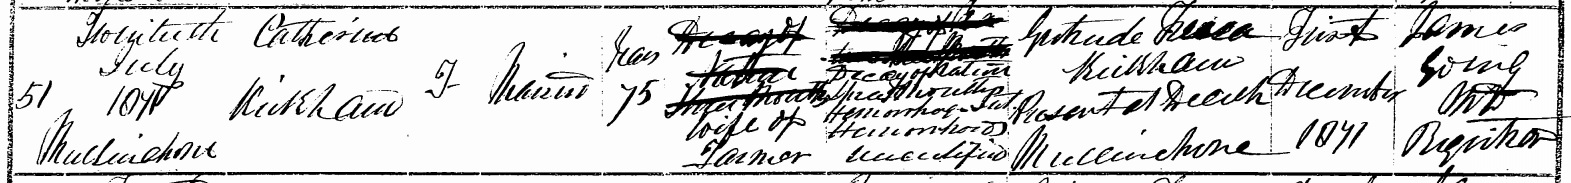 51
Twentieth
July
1871
Mullinahone
Catherine
Kickham
F
Married
Years
75
Decay of
Nature
Three Months
Wife of
Farmer
Decay of Nature
Three Months
Hemorrhage
Hemorrhoids
Uncertified
Gertrude
Kickham
Present at Death
Mullinahone
First
December
1871
James
Going
Registrar